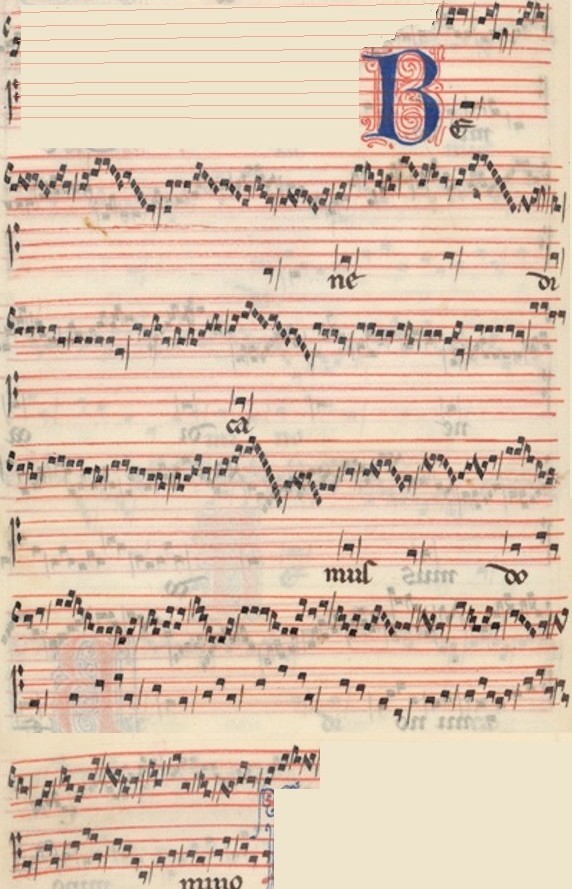 Be
ne di
ca
mus do
mino